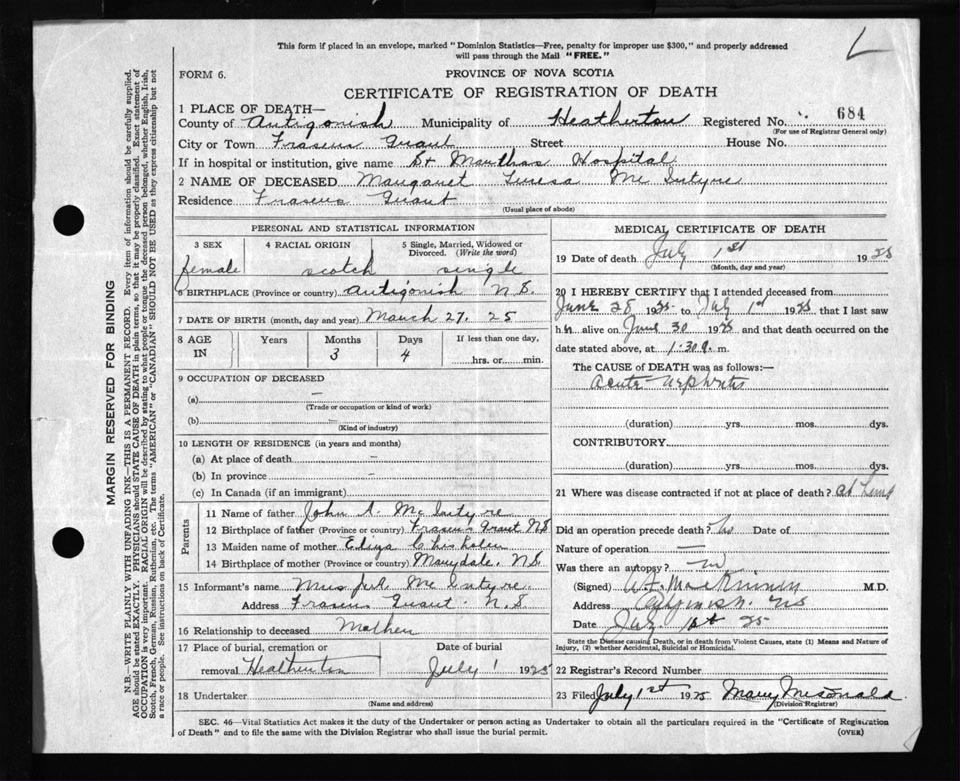 This form if placed in an envelope, marked "Dominion Statistics—Free, penalty for improper use $300," and properly addressed
will pass through the Mail "FREE."
FORM 6.
PROVINCE OF NOVA SCOTIA
CERTIFICATE OF REGISTRATION OF DEATH
1 PLACE OF DEATH—
County of Antigonish Municipality of Heatherton Registered No. 684
(For use of Registrar General only)
City or Town Frasers Grant Street House No.
If in hospital or institution, give name St Marthas Hospital
2 NAME OF DECEASED Margaret Teresa Mc Intyre
Residence Frasers Grant
(Usual place of abode)
PERSONAL AND STATISTICAL INFORMATION
3 SEX 4 RACIAL ORIGIN 5 Single, Married, Widowed or Divorced. (Write the word)
female scotch single
6 BIRTHPLACE (Province or country) Antigonish N.S.
7 DATE OF BIRTH (month, day and year) March 27. 25
8 AGE IN Years Months Days If less than one day,
3 4 hrs. or min.
9 OCCUPATION OF DECEASED
(a) —
(Trade or occupation or kind of work)
(b) —
(Kind of industry)
10 LENGTH OF RESIDENCE (in years and months)
(a) At place of death —
(b) In province —
(c) In Canada (if an immigrant)
Parents
11 Name of father John A. Mc Intyre
12 Birthplace of father (Province or country) Frasers Grant NS
13 Maiden name of mother Eliza Chisholm
14 Birthplace of mother (Province or country) Marydale, N.S.
15 Informant's name Mrs J.A. Mc Intyre
Address Frasers Grant. N.S
16 Relationship to deceased Mother
17 Place of burial, cremation or Date of burial
removal Heatherton July 1 1925
18 Undertaker
(Name and address)
MEDICAL CERTIFICATE OF DEATH
19 Date of death July 1st 1925
(Month, day and year)
20 I HEREBY CERTIFY that I attended deceased from
June 28 1925 to July 1st 1925, that I last saw
h alive on June 30 1925 and that death occurred on
date stated above, at 1.30 a. m.
The CAUSE of DEATH was as follows:—
Acute Nephritis
(duration) yrs. mos. dys.
CONTRIBUTORY
(duration) yrs. mos. dys.
21 Where was disease contracted if not at place of death? at home
Did an operation precede death? No Date of
Nature of operation —
Was there an autopsy? no
(Signed) M.D.
Address
Date July 1st 25
State the Disease causing Death, or in death from Violent Causes, state (1) Means and Nature of
Injury, (2) whether Accidental, Suicidal or Homicidal.
22 Registrar's Record Number
23 Filed July 1st 1925 Mary McDonald
(Division Registrar)
SEC. 46—Vital Statistics Act makes it the duty of the Undertaker or person acting as Undertaker to obtain all the particulars required in the "Certificate of Registration
of Death" and to file the same with the Division Registrar who shall issue the burial permit.
(OVER)
MARGIN RESERVED FOR BINDING
N.B.—WRITE PLAINLY WITH UNFADING INK—THIS IS A PERMANENT RECORD. Every item of information should be carefully supplied.
AGE should be stated EXACTLY. PHYSICIANS should STATE CAUSE OF DEATH in plain terms, so that it may be properly classified. Exact statement of
OCCUPATION is very important. RACIAL ORIGIN will be described by stating to what people or tongue the deceased person belonged, whether English, Irish,
Scotch, French, German, Russian, Ruthenian, etc. The terms "AMERICAN" or "CANADIAN" SHOULD NOT BE USED as they express citizenship but not
a race or people. See instructions on back of Certificate.